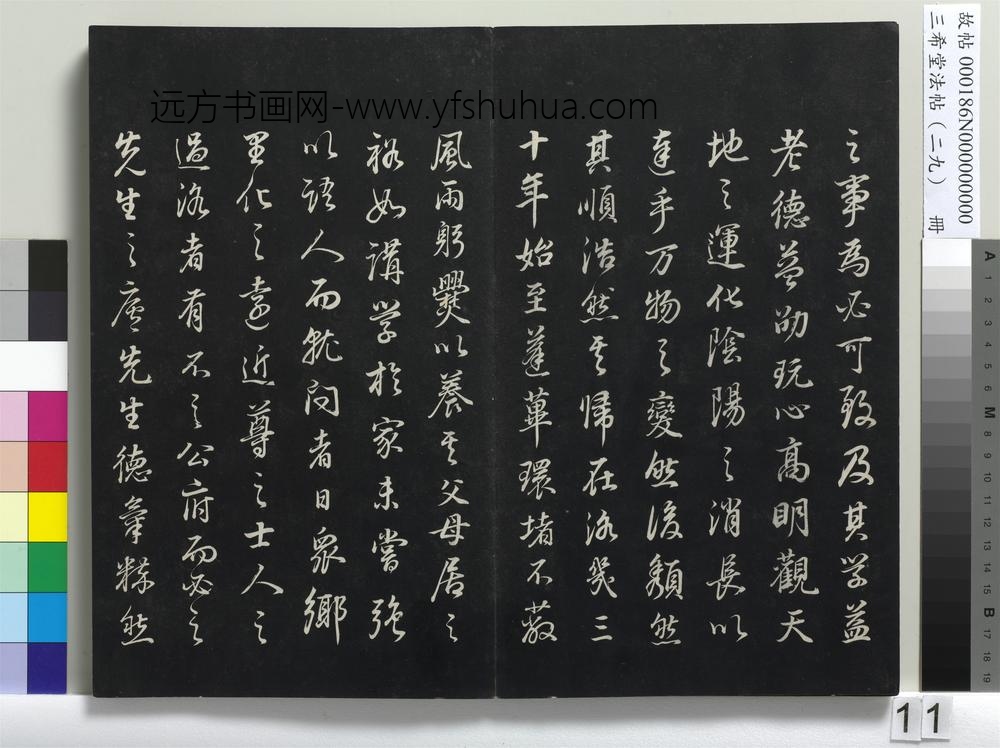 之事為必可致及其学益
老德益劭玩心高明觀天
地之運化陰陽之消長以
達乎万物之變然後頹然
其順浩然其歸在洛幾三
十年始至蓬蓽環堵不蔽
風雨躬爨以養其父母居之
裕如講学於家未嘗強
以語人而就问者日眾鄉
里化之遠近尊之士人之
過洛者有不之公府而必之
先生之廬先生德氣粹然
远方书画网-www.yfshuhua.com
故帖 000186N000000000
三希堂法帖（二九） 冊
A 1 2 3 4 5 6 M 8 9 10 11 12 13 14 15 B 17 18 19
11